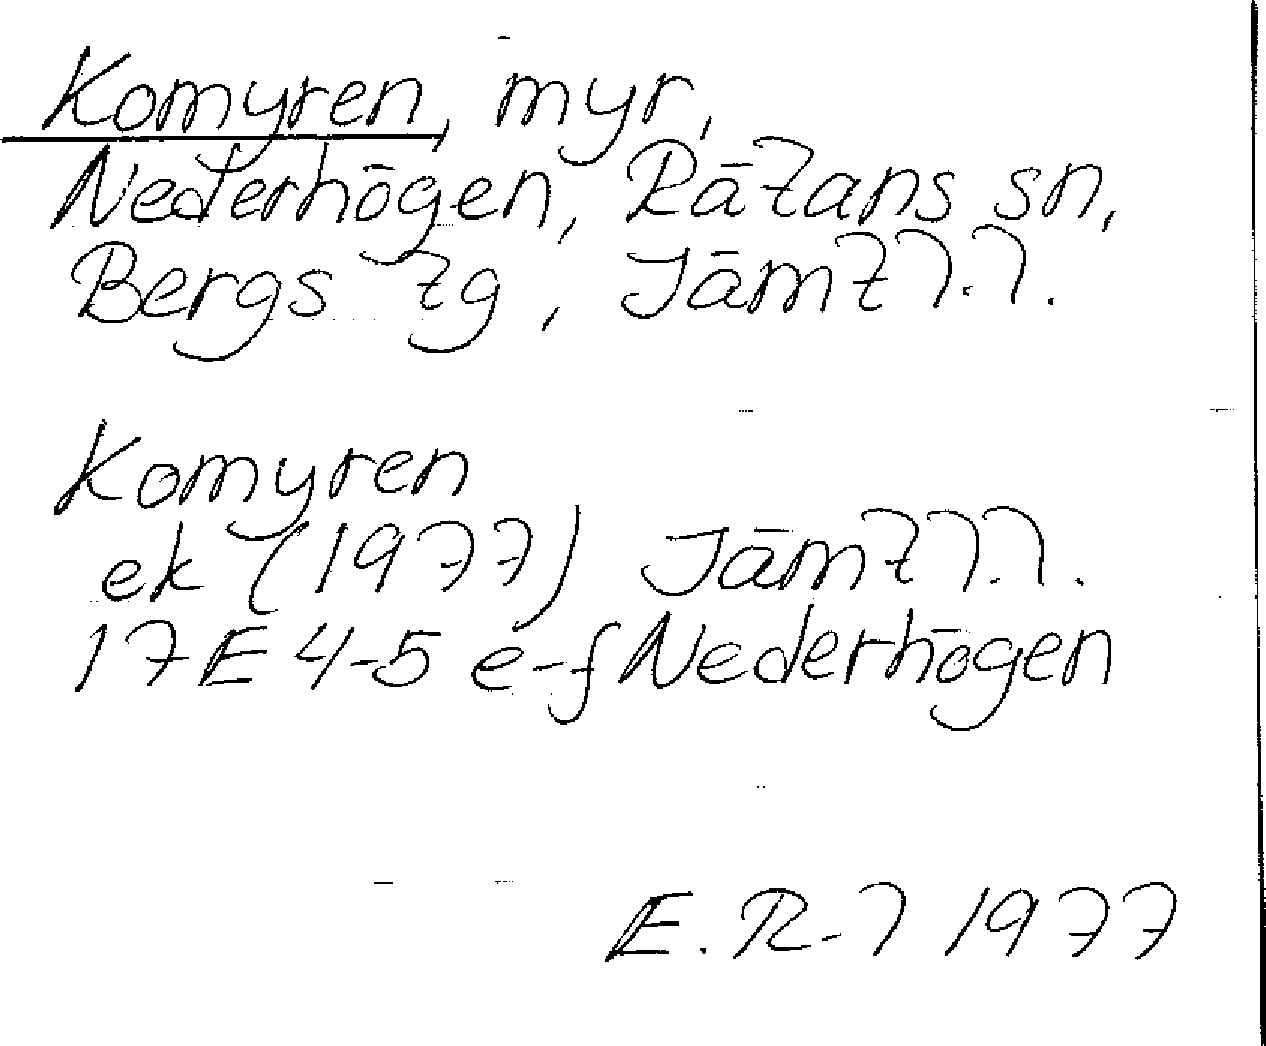 Komyren, myr,
Nederhögen, Rätans sn,
Bergs tg, Jämtl.l.
Komyren
ek (1977) Jämtl.l.
17E 4-5 e-f Nederhögen
E. R-l 1977